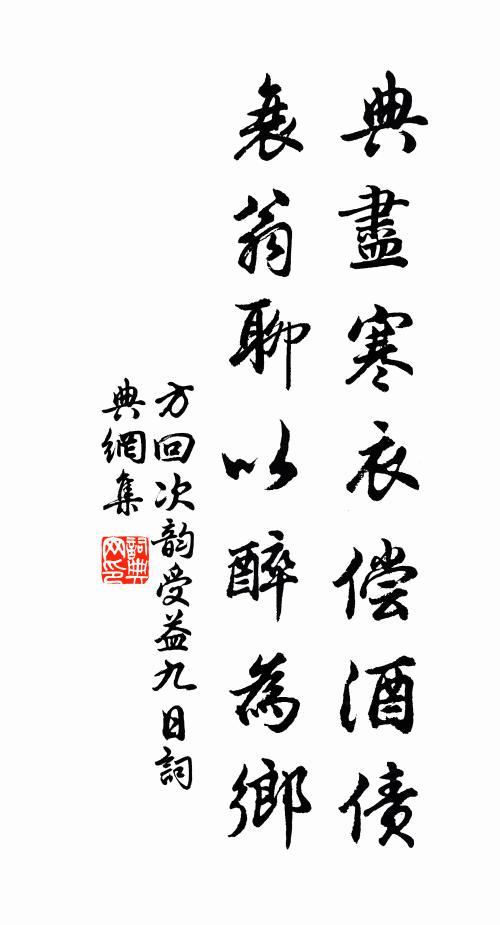 典盡寒衣偿酒债
衰翁聊以醉為鄉
方回次韵受益九日詞
典網集
詞典網印